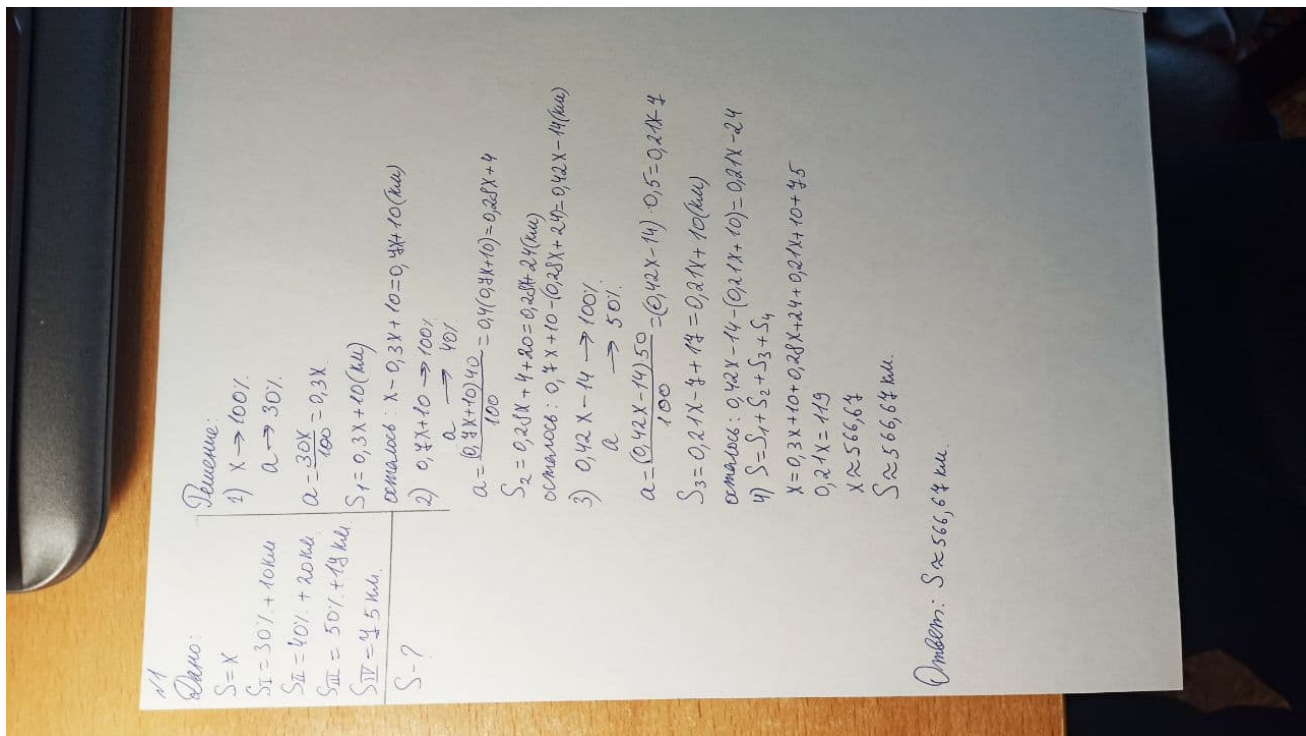 №1
Дано:
S=x
S_I=30%+10км
S_II=40%+20км
S_III=50%+17км
S_IV=75км.
S-?
Решение:
1) x→100%
a→30%
a=30x/100=0,3x
S₁=0,3x+10(км)
осталось: x-0,3x+10=0,7x+10(км)
2) 0,7x+10→100%
a → 40%
a=(0,7x+10)40/100=0,4(0,7x+10)=0,28x+4
S₂=0,28x+4+20=0,28x+24(км)
осталось: 0,7x+10-(0,28x+24)=0,42x-14(км)
3) 0,42x-14→100%
a → 50%
a=(0,42x-14)50/100=(0,42x-14)·0,5=0,21x-7
S₃=0,21x-7+17=0,21x+10(км)
осталось: 0,42x-14-(0,21x+10)=0,21x-24
4) S=S₁+S₂+S₃+S₄
x=0,3x+10+0,28x+24+0,21x+10+75
0,21x=119
x≈566,67
S≈566,67км.
Ответ: S≈566,67км.